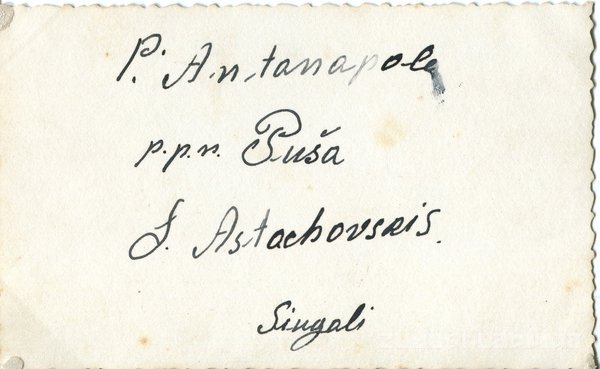 P. Antanapole
p.p.n. Puša
J. Astachovskis.
Singali